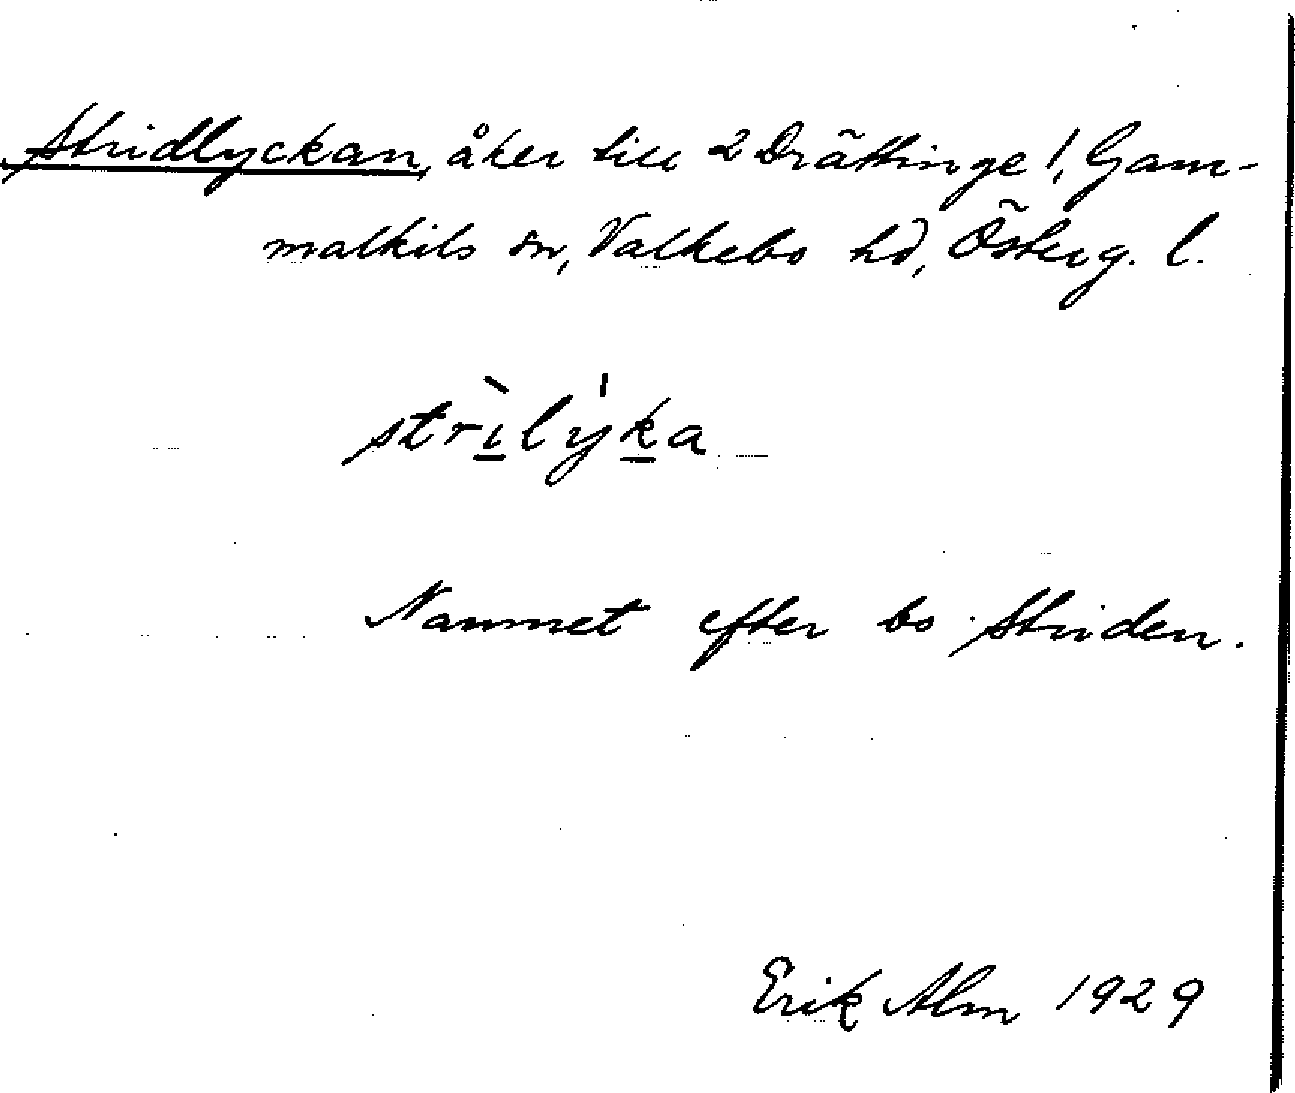 Stridlyckan, åker till 2 Drättinge !, Gam-
malkils sn, Valkebo hd, Österg. l.
strìlýka
Namnet efter bs Striden.
Erik Alm 1929